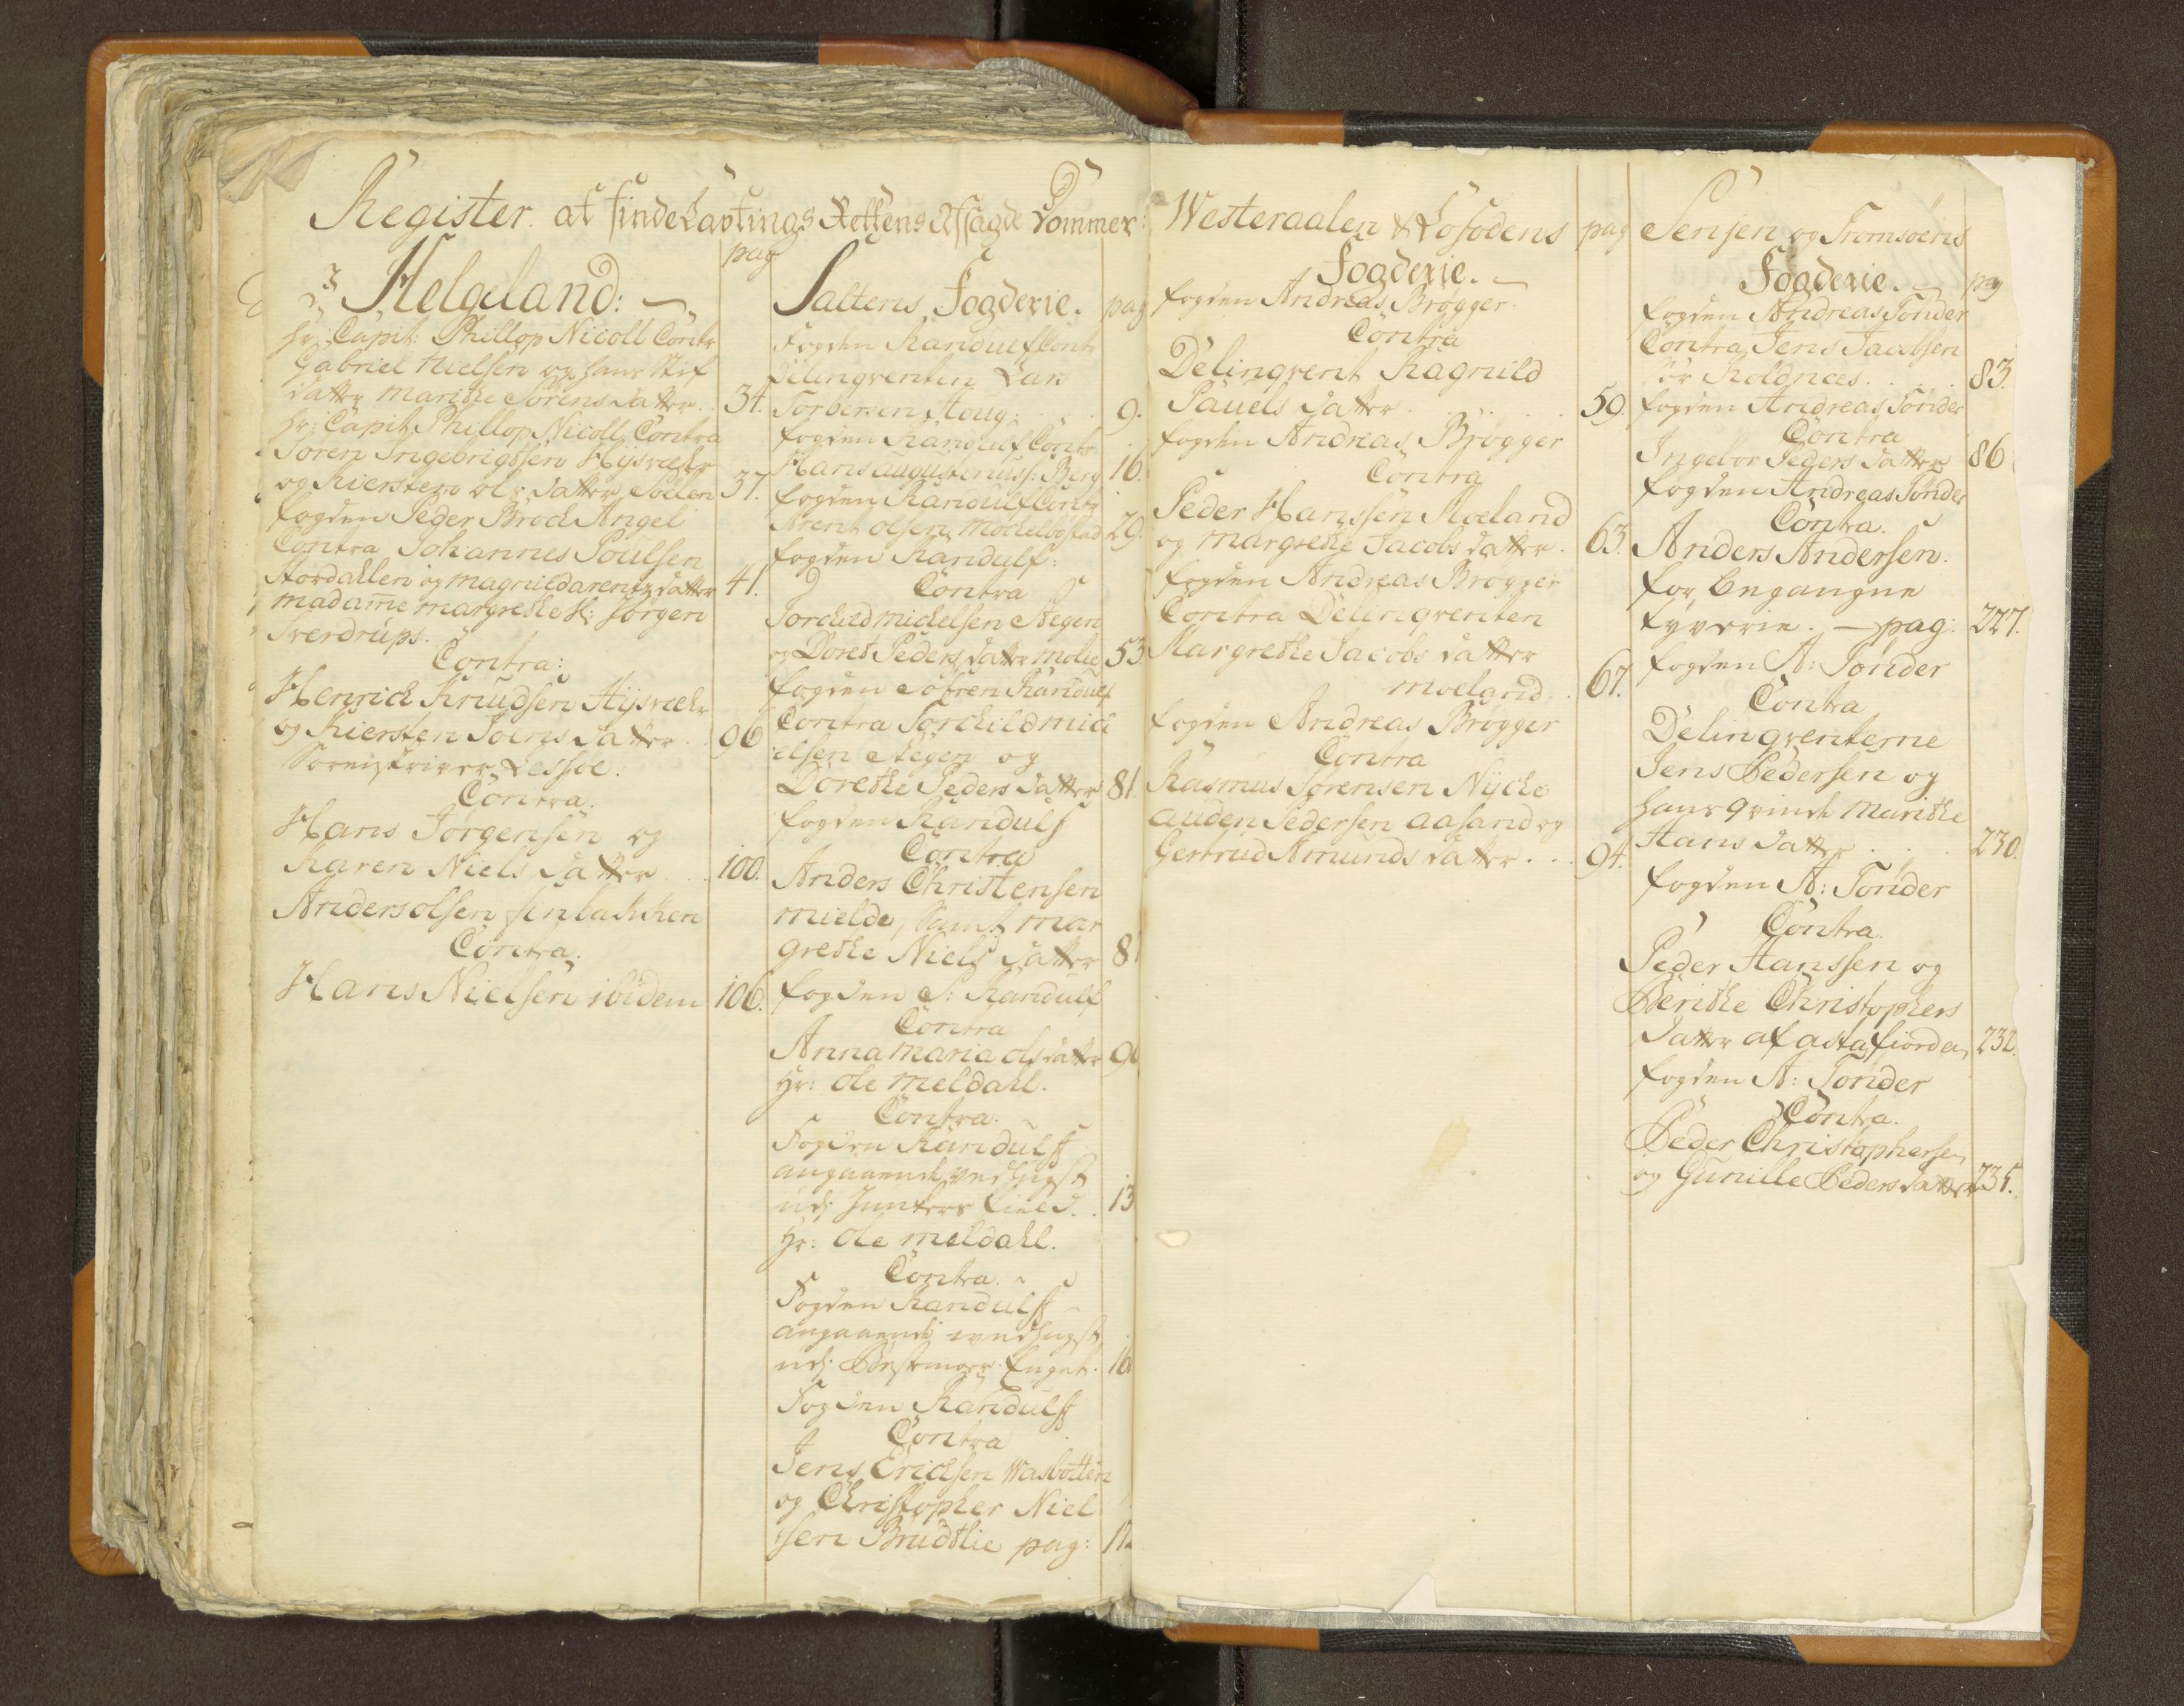 Register at finde Lavtings Rettens Afsagde Dommer:
pag
Helgeland:
Hr: Capit: Phillop Nicoll Contr
Gabriel Nielsen og hans Stif
datter Marithe Sørens datter. 34.
Hr: Capit Phillop Nicoll Contra
Søren Ingebrigtsen Hysvær
og Kiersten ols datter 37.
fogden Peder Brock Angel
Contra Johannes Poulsen
Stordahlen og Magnild arentz datter 41.
Madame Margrethe Sl: Jørgen
Sverdrups.
Contra:
Henrich Knudsen Hysvær
og Kiersten Joens datter. 96
Sorenskriver Lessøe.
Contra.
Hans Jørgensen og
Karen Niels datter . . 100.
Anders olsen finbakken
Contra.
Hans Nielsen ibidem 106.
Saltens Fogderie. pag
Fogden Randulf Contr
Delinqventen Lars
Torbersen Houg: . . . 9.
fogden Randulf Contr
Hans augustinuss: Berg 16.
fogden Randulf Contr
Arent olsen Mochelbostad 29.
fogden Randulf:
Contra
Torchild michelsen Aegen
og Doret Peders datter Molie 53.
fogden Søfren Randulf
Contra Torchild mich
elsen Aegen og
Dorethe Peders datter 81.
fogden Randulf
Contra
Anders Christensen
mielde, samt mar
grethe Niels datter 8
fogden S: Randulf
Contra
Anna maria ols datter 9
Hr: ole meldahl.
Contra.
Fogden Randulff
angaaende vedhugst
udj Junkers 13
Hr: ole meldahl.
Contra.
Fogden Randulff
angaaende vedhugst
udj 16
Fogden Randulff
Contra
Jens Erichsen Wasbotten
og Christopher Niel
sen Brudtlie pag: 17
Westeraalen & Lofodens pag
Fogderie.
fogden Andreas Brøgger
Contra
Delinqvent Ragnild
Pauels datter . . . . . 59.
fogden Andreas Brøgger
Contra
Peder Hanssen Moeland
og margrethe Jacobs datter. 63.
fogden Andreas Brøgger
Contra Delinqventen
Margrethe Jacobs datter
moeland . . 67.
fogden Andreas Brøgger
Contra
Rasmus Sørensen Nycke
auden Pedersen aasand og
Gertrud Amunds datter. . . 94.
Senjen og Tromsøens
Fogderie. pag
fogden Andreas Tønder
Contra Jens Jacobsen
Koldnæs. . . . . 83.
fogden Andreas Tønder
Contra
Ingebor Peders datter 86
fogden Andreas Tønder
Contra.
Anders Andersen.
for begangne
tyverie. — pag: 227.
fogden A: Tønder
Contra
Delinqventerne
Jens Pedersen og
hans qvinde Marithe
Hans datter . . . 230.
fogden A: Tønder
Contra.
Peder Hanssen og
Berithe Christophers
datter af astafiorden 232.
fogden A: Tønder
Contra.
Peder Christophersen
og Gunille Peders datter 235.